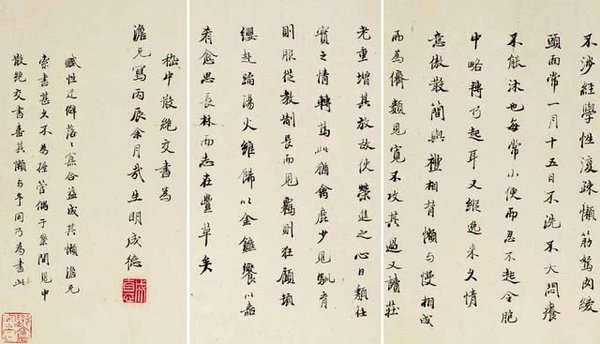 不涉經學性復疎懶筋駑肉緩
頭面常一月十五日不洗不大悶癢
不能沐也每常小便而忍不起令胞
中略轉乃起耳又縱逸來久情
意傲散簡與禮相背懶與慢相成
而為儕類見寬不攻其過又讀莊
老重增其放故使榮進之心日頹任
實之情轉篤此猶禽鹿少見馴育
則服從教制長而見羈則狂顧頓
纓赴蹈湯火雖飾以金鑣饗以嘉
肴愈思長林而志在豐草矣
嵇中散絕交書為
澹兄寫丙辰余月哉生明成德
性迂僻落々寡合益成其懶澹兄
索書甚久不為握管偶于案間見中
散絕交書喜其懶与予同乃為書此